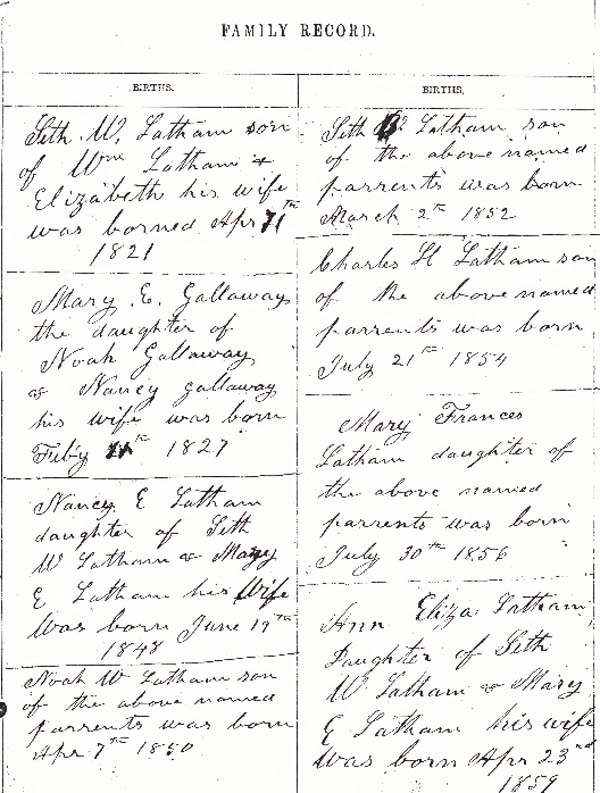 FAMILY RECORD.
BIRTHS.
Seth W. Latham son
of Wm Latham &
Elizabeth his wife
was borned Apr 11th
1821
Mary E. Gallaway
the daughter of
Noah Gallaway
& Nancy Gallaway
his wife was born
Feb'y 11th 1827
Nancy E Latham
daughter of Seth
W Latham & Mary
E Latham his Wife
Was born June 19th
1848
Noah W Latham son
of the above named
parrents was born
Apr 7th 1850
BIRTHS.
Seth Latham son
of the above named
parrents was born
March 2th 1852
Charles H Latham son
of the above named
parrents was born
July 21th 1854
Mary Frances
Latham daughter of
the above named
parrents was born
July 30th 1856
Ann Eliza Latham
Daughter of Seth
W Latham & Mary
E Latham his wife
was born Apr 23nd
1859